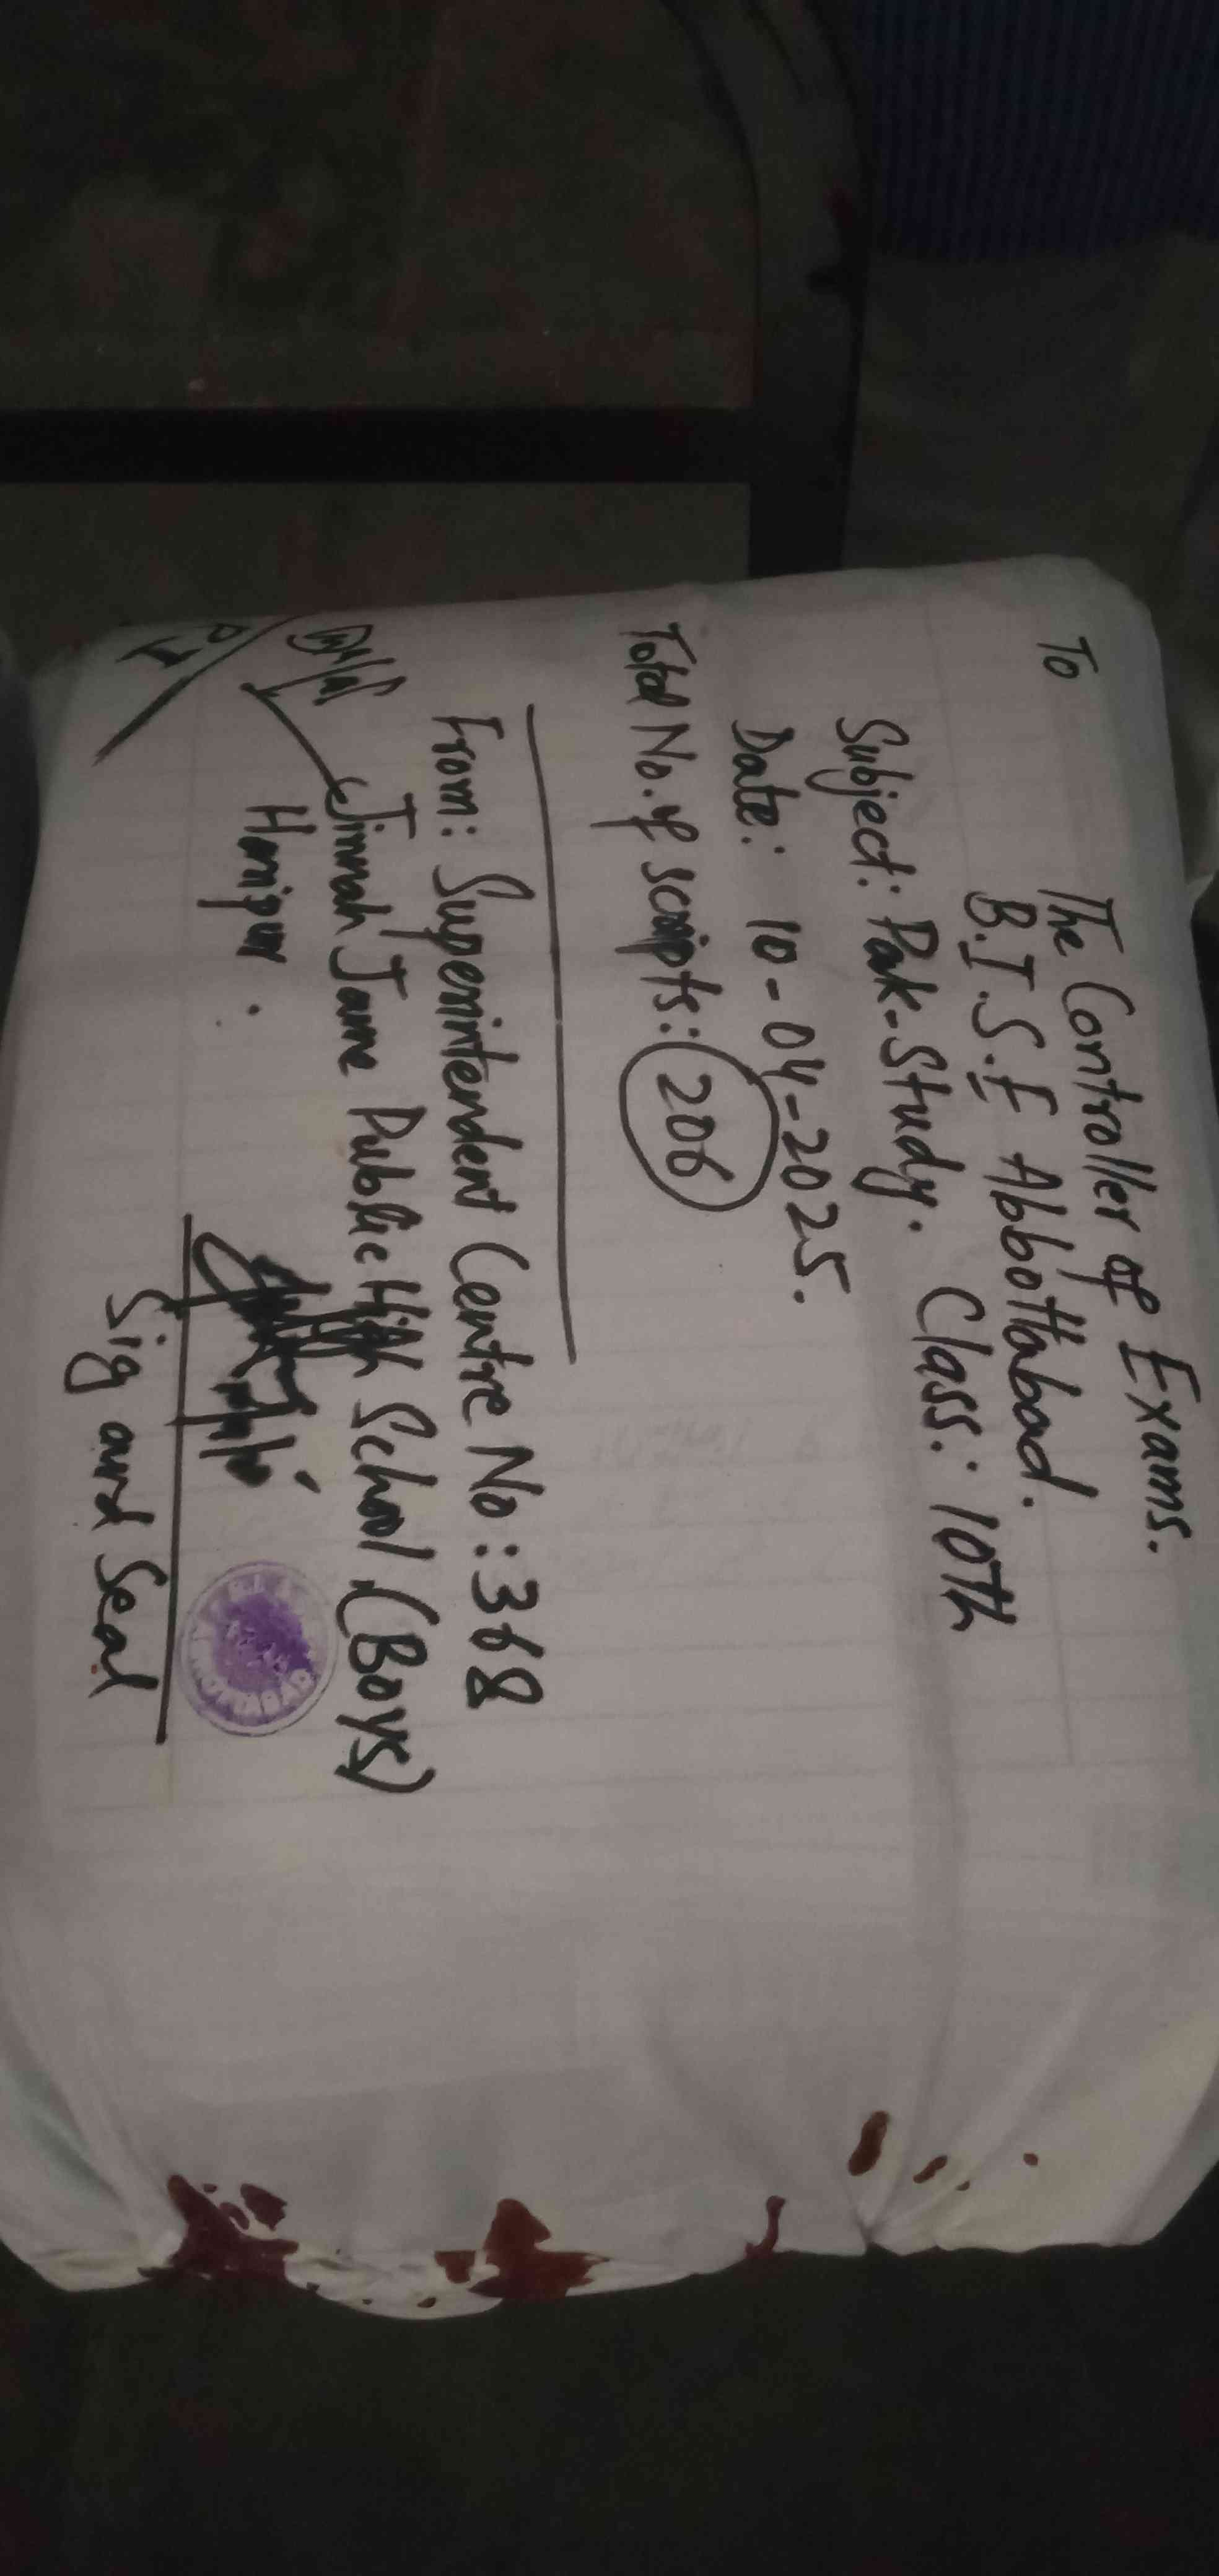 To
The Controller of Exams.
B.I.S.E Abbottabad.
Subject: Pak-Study. Class: 10th
Date: 10-04-2025.
Total No. of scripts: 206
From: Superintendent Centre No: 368
Jinnah Jame Public High School (Boys)
Haripur.
Sig and Seal